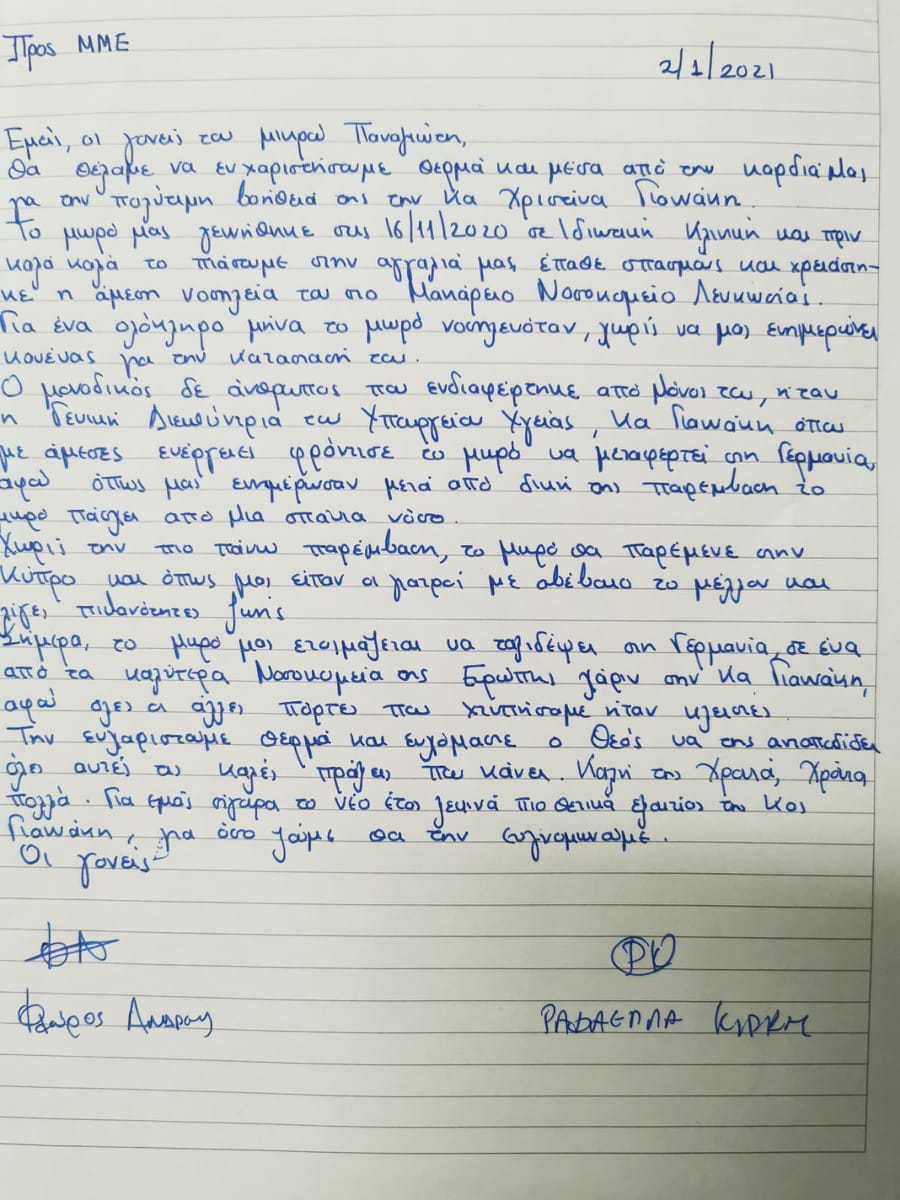 Προς ΜΜΕ
2/1/2021
Εμείς, οι γονείς του μικρού Παναγιώτη,
Θα θέλαμε να ευχαριστήσουμε θερμά και μέσα από την καρδιά μας
για την πολύτιμη βοήθειά της την Κα Χριστίνα Γιαννάκη.
Το μωρό μας γεννήθηκε στις 16/11/2020 σε Ιδιωτική Κλινική και πριν
καλά καλά το πιάσουμε στην αγγαλιά μας, έπαθε σπασμούς και χρειάστη-
κε η άμεση νοσηλεία του στο Μακάρειο Νοσοκομείο Λευκωσίας.
Για ένα ολόκληρο μήνα το μωρό νοσηλευόταν, χωρίς να μας ενημερώνει
κανένας για την κατάσταση του.
Ο μοναδικός δε άνθρωπος που ενδιαφέρτηκε από μόνος του, ήταν
η Γενική Διευθύντρια του Υπουργείου Υγείας, Κα Γιαννάκη όπου
με άμεσες ενέργειες φρόντισε το μωρό να μεταφερτεί στη Γερμανία,
αφού όπως μας ενημέρωσαν μετά από δική της παρέμβαση το
μωρό πάσχει από μια σπάνια νόσο.
Χωρίς την πιο πάνω παρέμβαση, το μωρό θα παρέμενε στην
Κύπρο και όπως μας είπαν οι γιατροί με αβέβαιο το μέλλον και
λίγες πιθανότητες ζωής
Σήμερα, το μωρό μας ετοιμάζεται να ταξιδέψει στη Γερμανία, σε ένα
από τα καλύτερα Νοσοκομεία της Ευρώπης χάριν στην Κα Γιαννάκη,
αφού όλες οι άλλες πόρτες που χτυπήσαμε ήταν κλειστές.
Την ευχαριστούμε θερμά και ευχόμαστε ο Θεός να της ανταποδίδει
όλες αυτές τις καλές πράξεις που κάνει. Καλή της Χρονιά, Χρόνια
πολλά. Για εμάς σίγουρα το νέο έτος ξεκινά πιο θετικά εξαιτίας της Κας
Γιαννάκη, για όσο ζούμε θα την ευγνωμονούμε.
Οι γονείς
Φλώρος Ανδρέου
ΡΑΦΑΕΛΛΑ ΚΙΡΚΗ